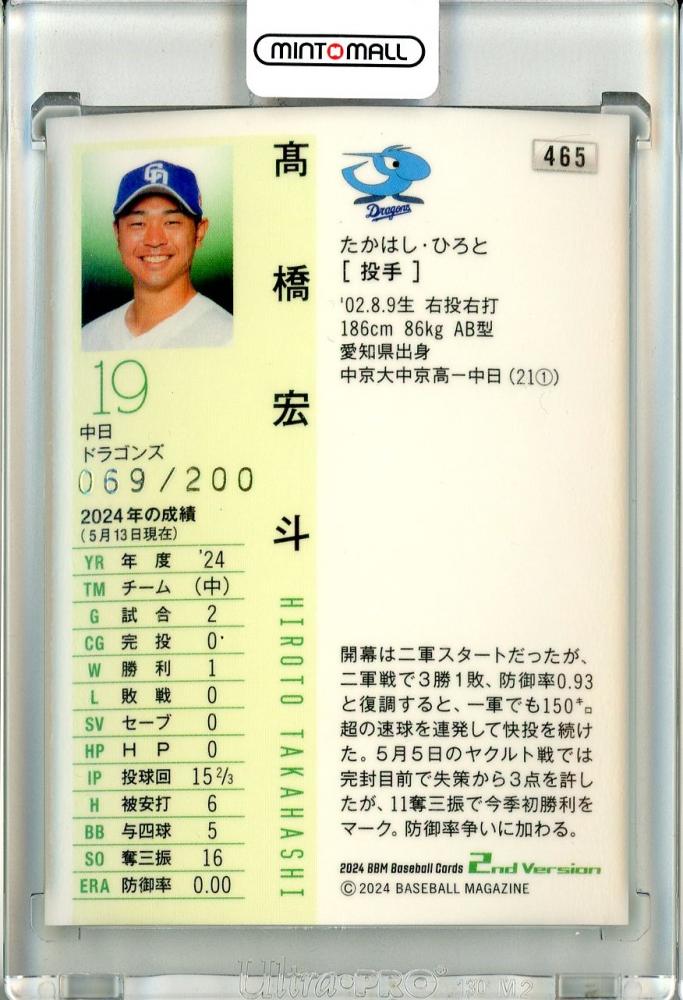 MINTMALL
465
髙橋宏斗
HIROTO TAKAHASHI
Dragons
たかはし・ひろと
[ 投手 ]
'02.8.9生 右投右打
186cm 86kg AB型
愛知県出身
中京大中京高ー中日(21①)
19
中日
ドラゴンズ
069/200
2024年の成績
(5月13日現在)
YR 年度 '24
TM チーム (中)
G 試合 2
CG 完投 0
W 勝利 1
L 敗戦 0
SV セーブ 0
HP HP 0
IP 投球回 15 2/3
H 被安打 6
BB 与四球 5
SO 奪三振 16
ERA 防御率 0.00
開幕は二軍スタートだったが、
二軍戦で3勝1敗、防御率0.93
と復調すると、一軍でも150㌔
超の速球を連発して快投を続け
た。5月5日のヤクルト戦では
完封目前で失策から3点を許し
たが、11奪三振で今季初勝利を
マーク。防御率争いに加わる。
2024 BBM Baseball Cards 2nd Version
©2024 BASEBALL MAGAZINE
Ultra·PRO 130 M2